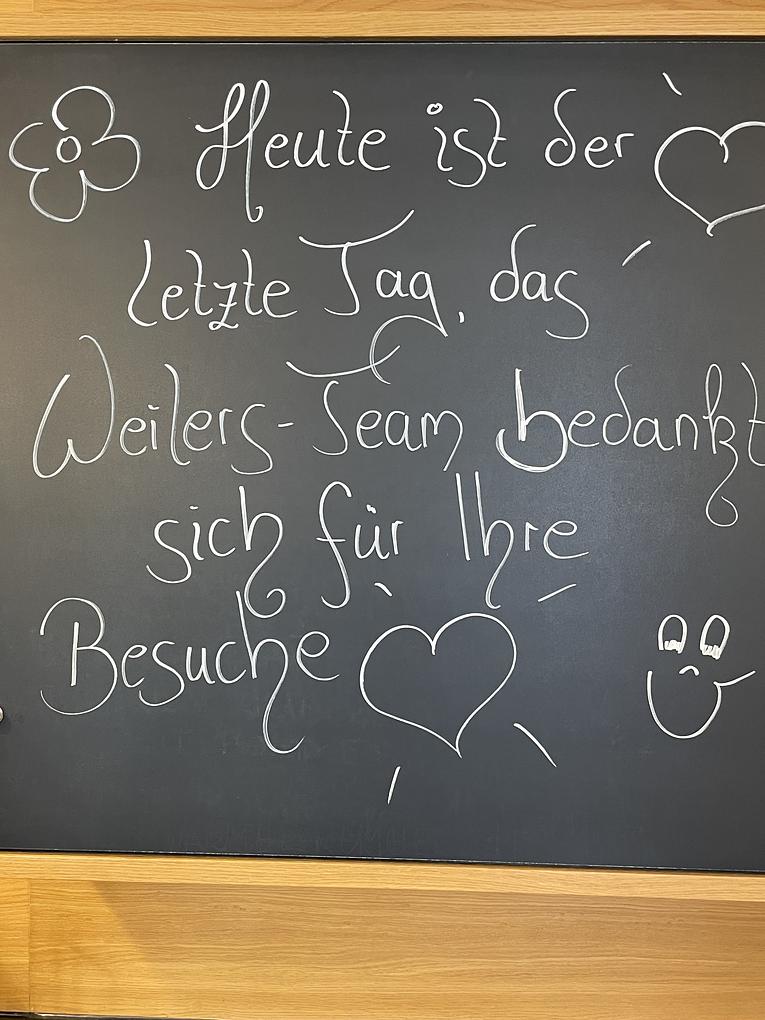 Heute ist der
letzte Tag, das
Weilers-Team bedankt
sich für Ihre
Besuche